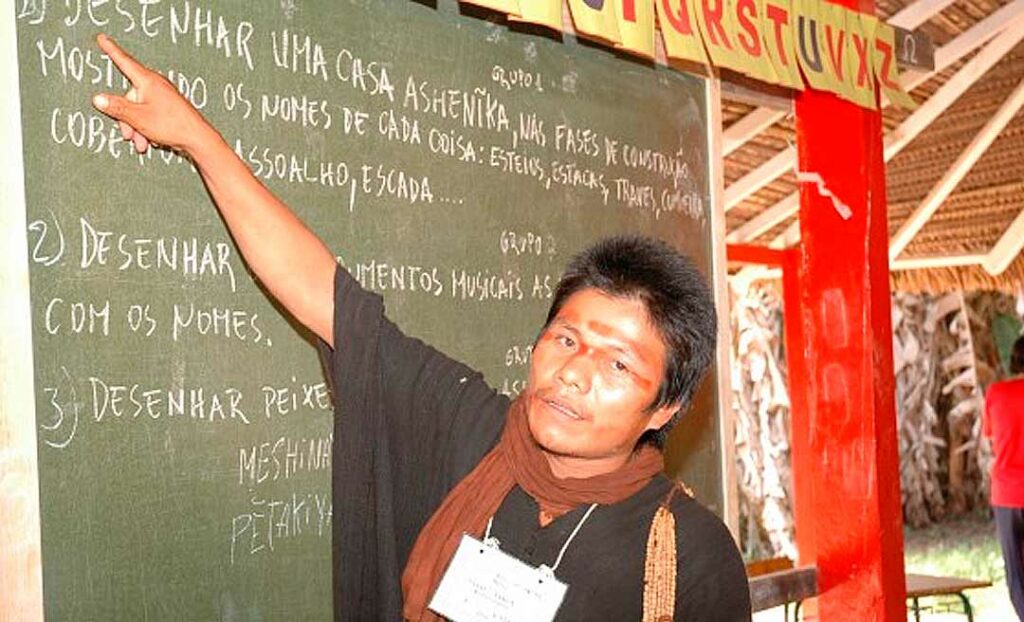 1) DESENHAR UMA CASA ASHENĨKA, NAS FASES DE CONSTRUÇÃO
GRUPO 1
MOST NDO OS NOMES DE CADA COISA: ESTEIOS, ESTACAS, TRAVES,
COBE ASSOALHO, ESCADA....
GRUPO 2
2) DESENHAR UMENTOS MUSICAIS AS
COM OS NOMES.
GRU
3) DESENHAR PEIXE
MESHINA
PĒTAKIYA
QRSTUVXZ